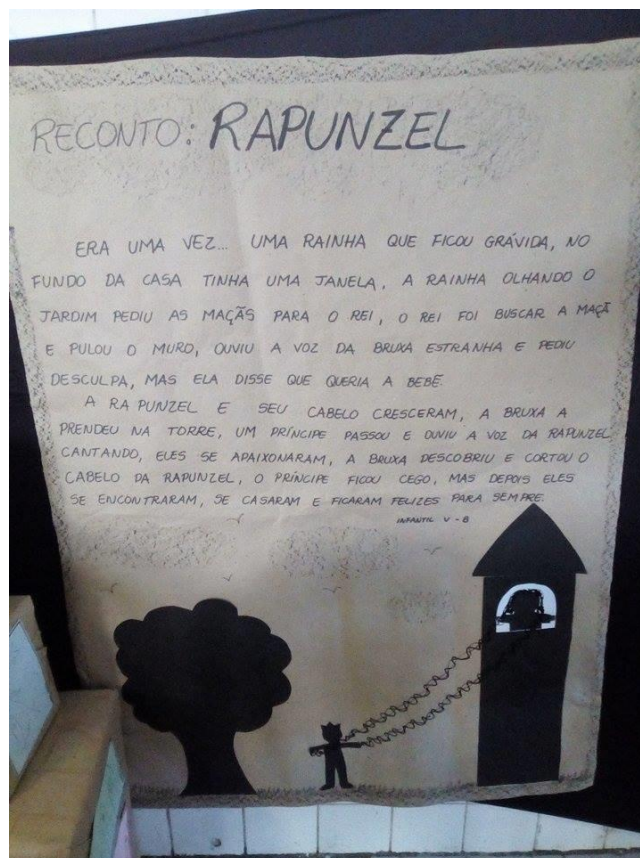 RECONTO: RAPUNZEL
ERA UMA VEZ... UMA RAINHA QUE FICOU GRÁVIDA, NO
FUNDO DA CASA TINHA UMA JANELA, A RAINHA OLHANDO O
JARDIM PEDIU AS MAÇÃS PARA O REI, O REI FOI BUSCAR A MAÇÃ
E PULOU O MURO, OUVIU A VOZ DA BRUXA ESTRANHA E PEDIU
DESCULPA, MAS ELA DISSE QUE QUERIA A BEBÊ.
A RA PUNZEL E SEU CABELO CRESCERAM, A BRUXA A
PRENDEU NA TORRE, UM PRÍNCIPE PASSOU E OUVIU A VOZ DA RAPUNZEL
CANTANDO, ELES SE APAIXONARAM, A BRUXA DESCOBRIU E CORTOU O
CABELO DA RAPUNZEL, O PRÍNCIPE FICOU CEGO, MAS DEPOIS ELES
SE ENCONTRARAM, SE CASARAM E FICARAM FELIZES PARA SEMPRE.
INFANTIL V - B